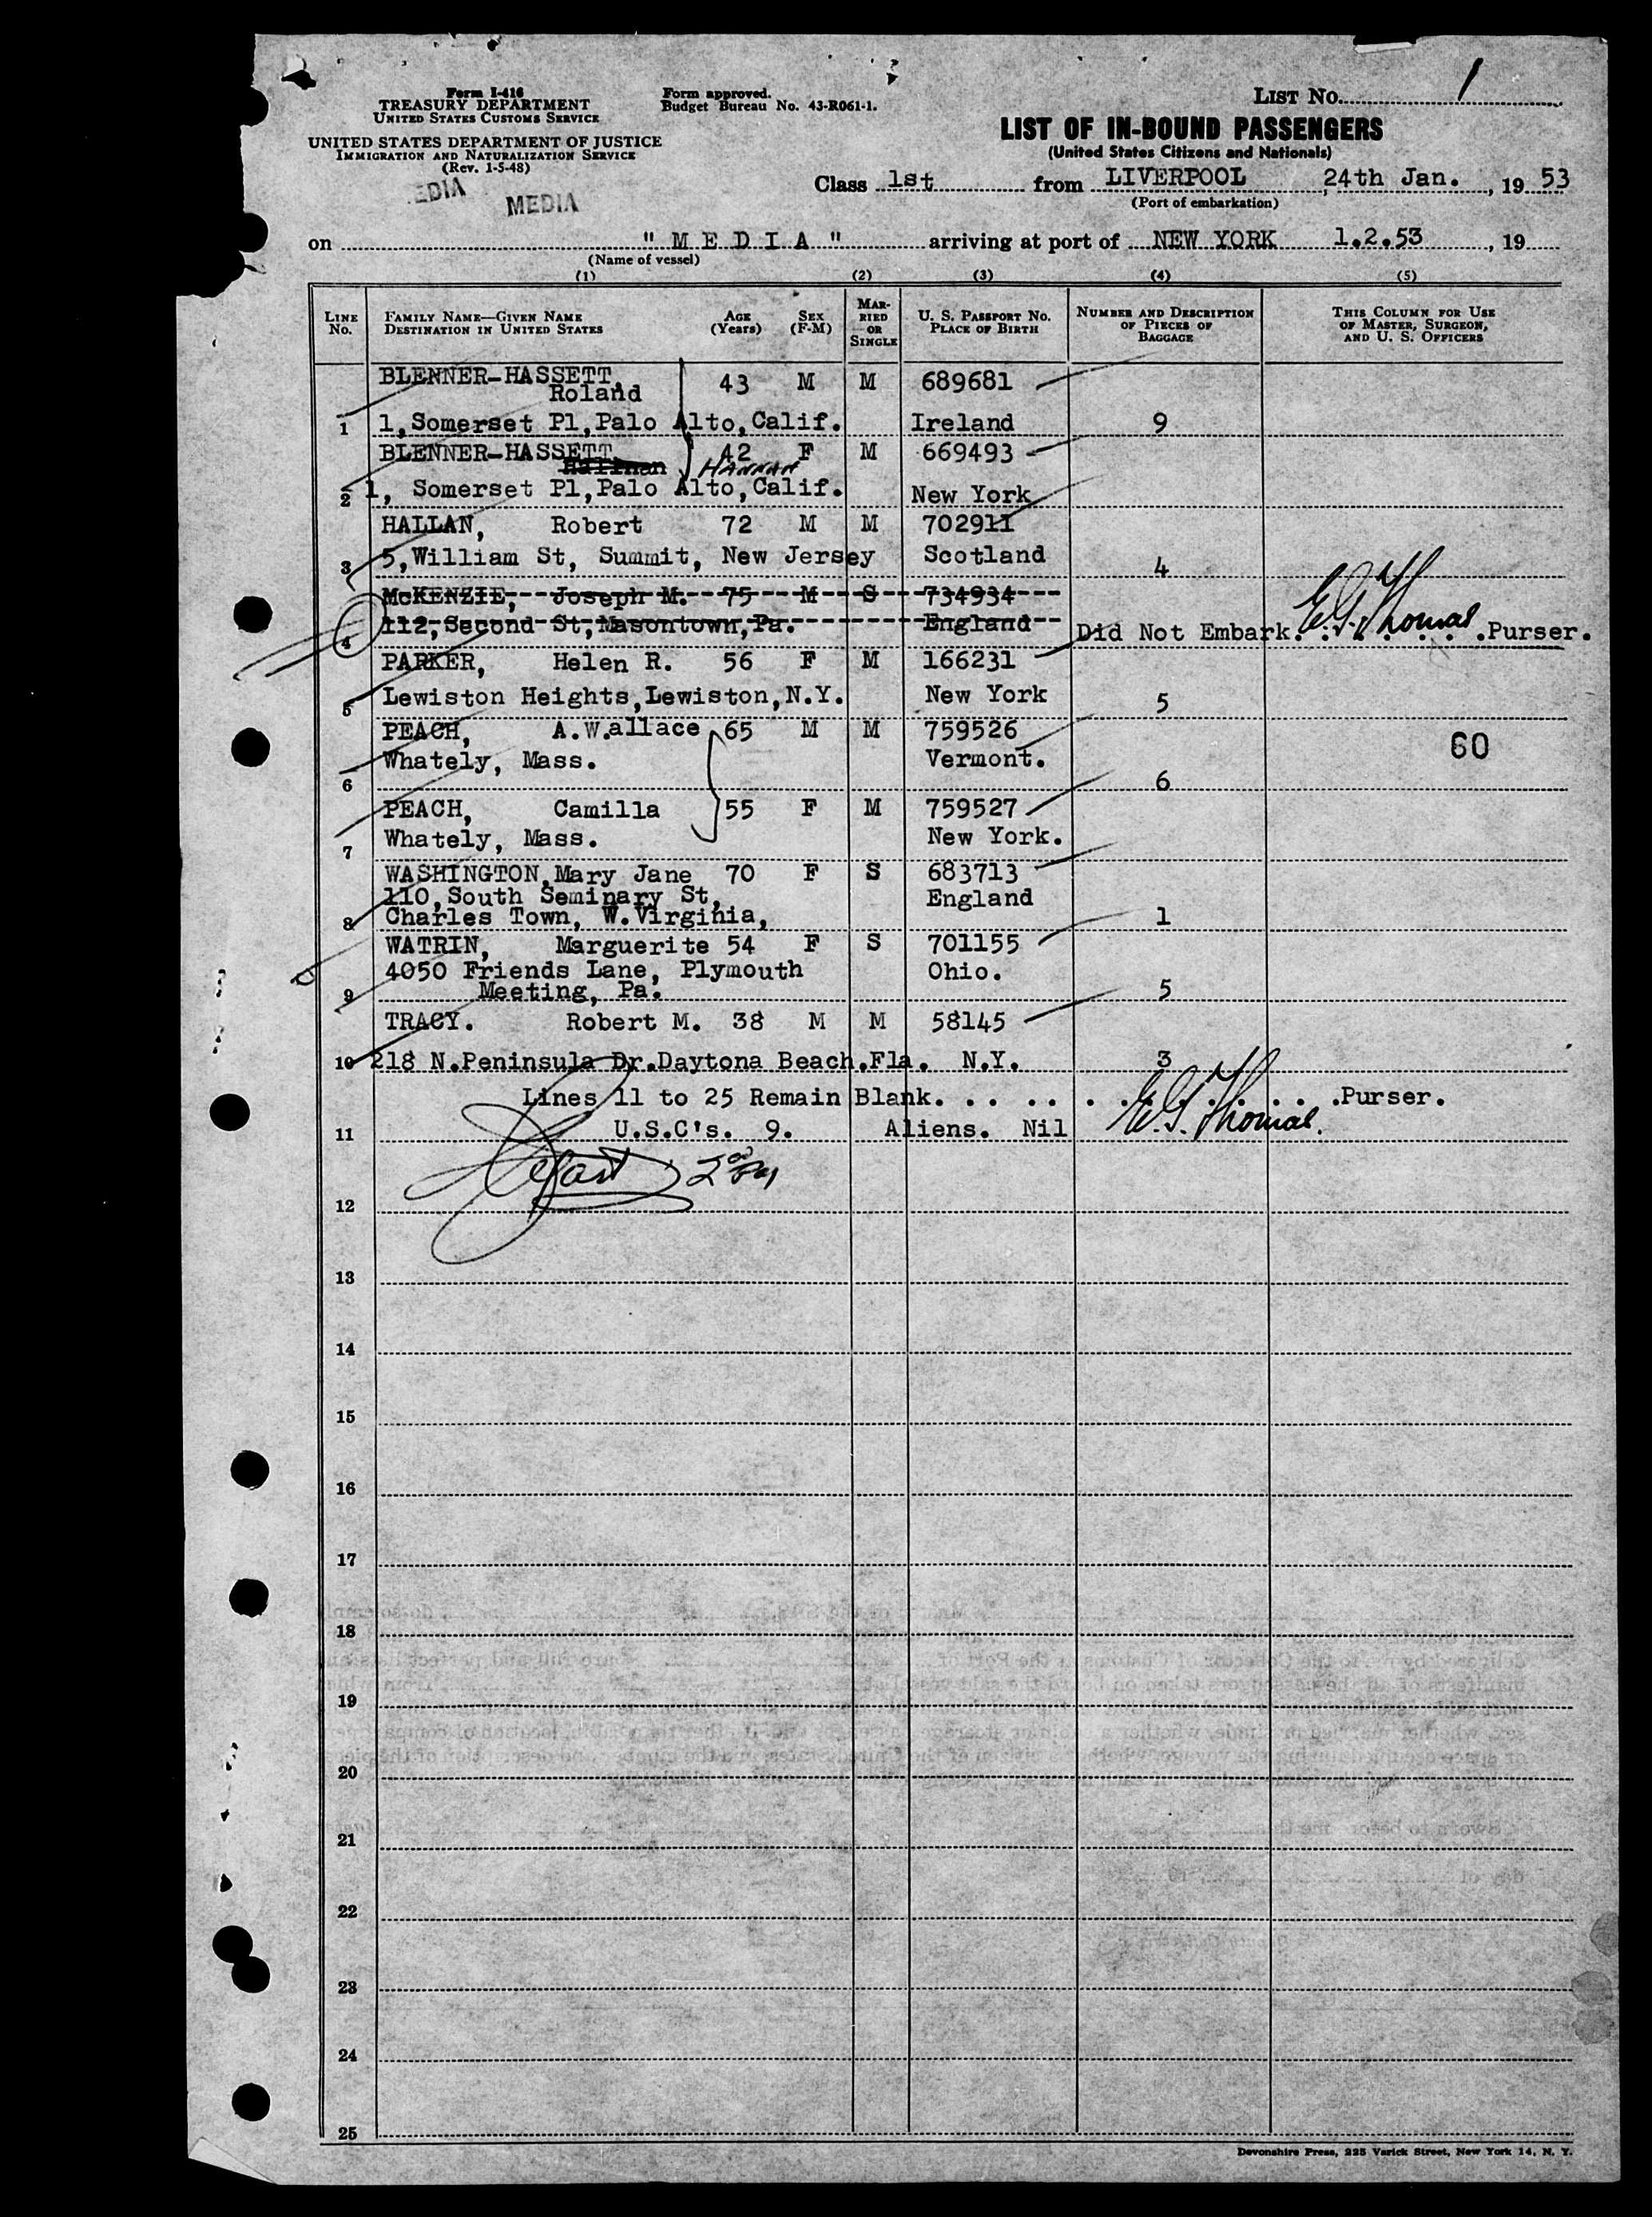 Form I-416
TREASURY DEPARTMENT
UNITED STATES CUSTOMS SERVICE
UNITED STATES DEPARTMENT OF JUSTICE
IMMIGRATION AND NATURALIZATION SERVICE
(Rev. 1-5-48)
Form approved.
Budget Bureau No. 43-R061-1.
LIST No. 1
LIST OF IN-BOUND PASSENGERS
(United States Citizens and Nationals)
EDIA MEDIA
Class 1st from LIVERPOOL, 24th Jan., 19 53
(Port of embarkation)
on "MEDIA" arriving at port of NEW YORK 1.2.53, 19
(Name of vessel)
(1) (2) (3) (4) (5)
LINE No. FAMILY NAME—GIVEN NAME DESTINATION IN UNITED STATES AGE (Years) SEX (F-M) MARRIED OR SINGLE U. S. PASSPORT NO. PLACE OF BIRTH NUMBER AND DESCRIPTION OF PIECES OF BAGGAGE THIS COLUMN FOR USE OF MASTER, SURGEON, AND U. S. OFFICERS
BLENNER-HASSETT,
Roland 43 M M 689681
1 1, Somerset Pl, Palo Alto, Calif. Ireland 9
BLENNER-HASSETT 42 F M 669493
HANNAH
2 1, Somerset Pl, Palo Alto, Calif. New York
HALLAN, Robert 72 M M 702911
3 5, William St, Summit, New Jersey Scotland 4
McKENZIE, Joseph M. 75 M S 734934
4 112, Second St, Masontown, Pa. England Did Not Embark. E.G. Thomas. Purser.
PARKER, Helen R. 56 F M 166231
5 Lewiston Heights, Lewiston, N.Y. New York 5
PEACH, A.W.allace 65 M M 759526
Whately, Mass. Vermont. 60
6 6
PEACH, Camilla 55 F M 759527
7 Whately, Mass. New York.
WASHINGTON, Mary Jane 70 F S 683713
110, South Seminary St, England
8 Charles Town, W.Virginia, 1
WATRIN, Marguerite 54 F S 701155
4050 Friends Lane, Plymouth Ohio.
9 Meeting, Pa. 5
TRACY. Robert M. 38 M M 58145
10 218 N.Peninsula Dr.Daytona Beach.Fla. N.Y. 3
Lines 11 to 25 Remain Blank. . . . . . . . E.G. Thomas. Purser.
11 U.S.C's. 9. Aliens. Nil
12
13
14
15
16
17
18
19
20
21
22
23
24
25
Devonshire Press, 225 Varick Street, New York 14, N. Y.